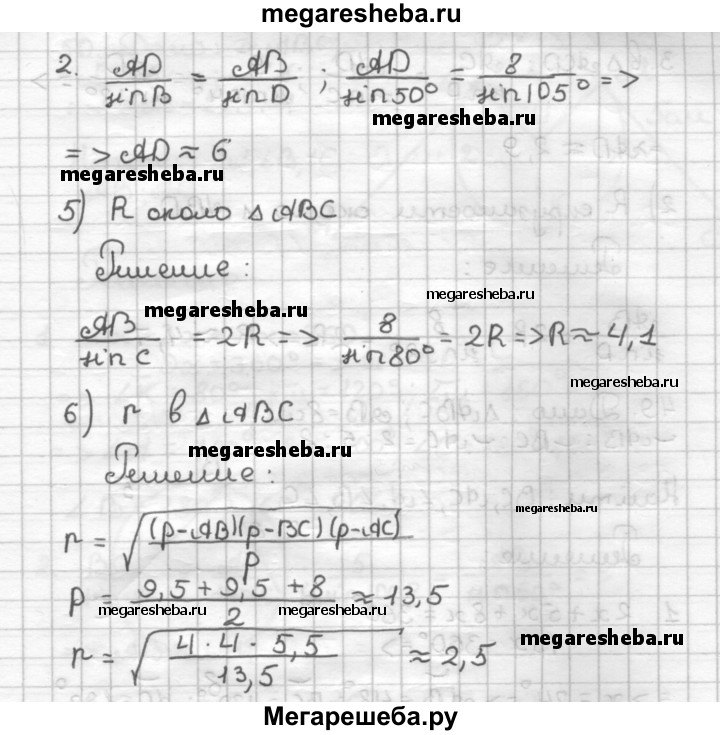 megaresheba.ru
2. AD/sin B = AB/sin D ; AD/sin 50° = 8/sin 105° =>
megaresheba.ru
=> AD ≈ 6
megaresheba.ru
5) R около △ ABC
Решение:
megaresheba.ru
megaresheba.ru
AB/sin C = 2R => 8/sin 80° = 2R => R ≈ 4,1
megaresheba.ru
6) r в △ ABC
megaresheba.ru
Решение:
megaresheba.ru
r = √((p-AB)(p-BC)(p-AC)/p)
p = (9,5 + 9,5 + 8)/2 ≈ 13,5
megaresheba.ru megaresheba.ru
megaresheba.ru
r = √(4 · 4 · 5,5/13,5) ≈ 2,5
Мегарешеба.ру